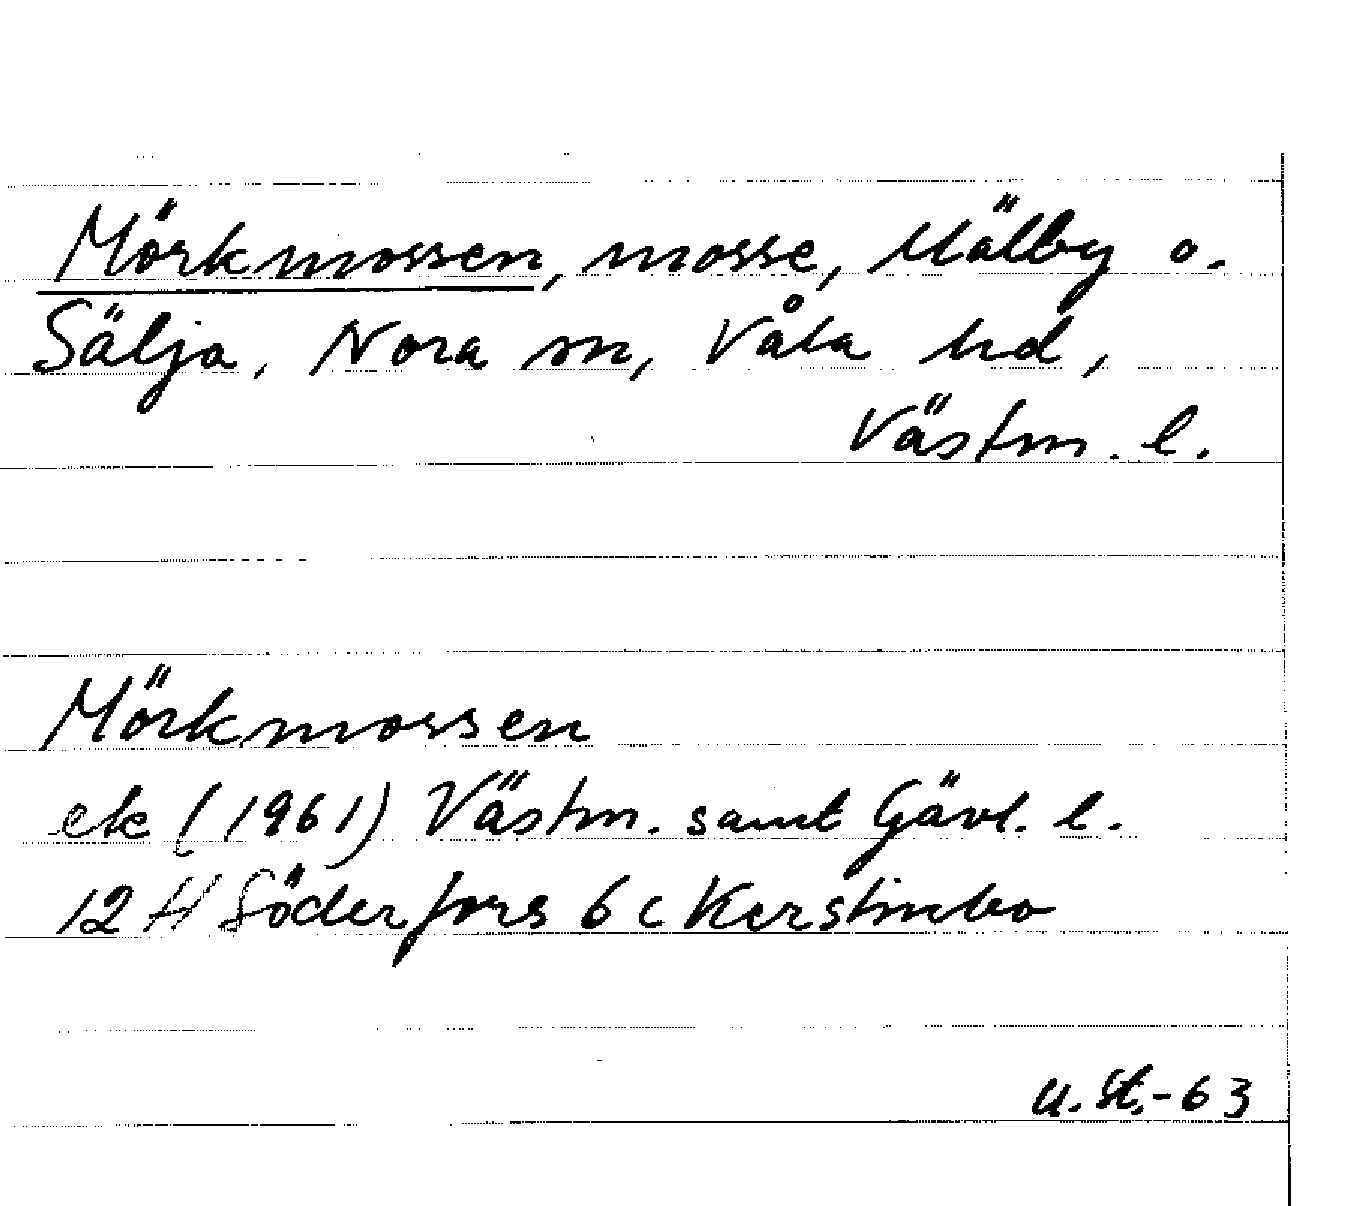 Mörkmossen, mosse, Mälby o.
Sälja, Nora sn, Våla hd,
Västm. l.
Mörkmossen
ek (1961) Västm. samt Gävl. l.
12 H Söderfors 6 c Kerstinbo
U. St.-63